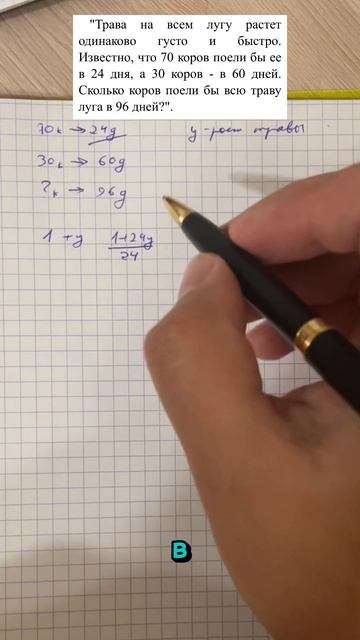 "Трава на всем лугу растет
одинаково густо и быстро.
Известно, что 70 коров поели бы ее
в 24 дня, а 30 коров - в 60 дней.
Сколько коров поели бы всю траву
луга в 96 дней?".
70к → 24д у - рост травы
30к → 60д
?к → 96д
1 + у 1+24у
24
В